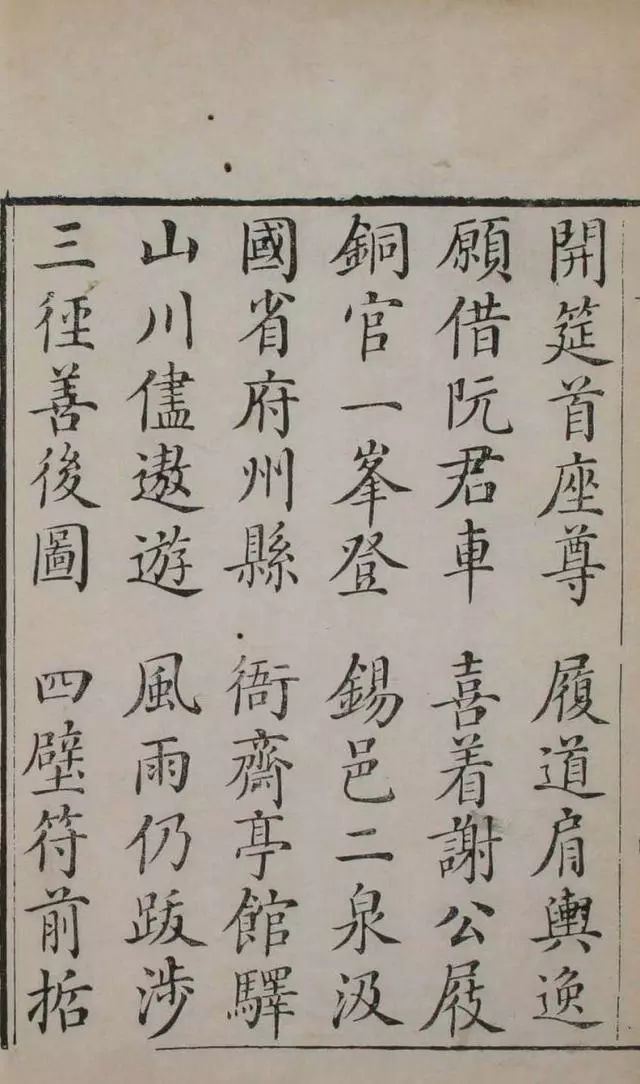 開筵首座尊　履道肩輿逸
願借阮君車　喜着謝公屐
銅官一峯登　錫邑二泉汲
國省府州縣　衙齋亭館驛
山川儘遨遊　風雨仍跋涉
三徑善後圖　四壁符前哲